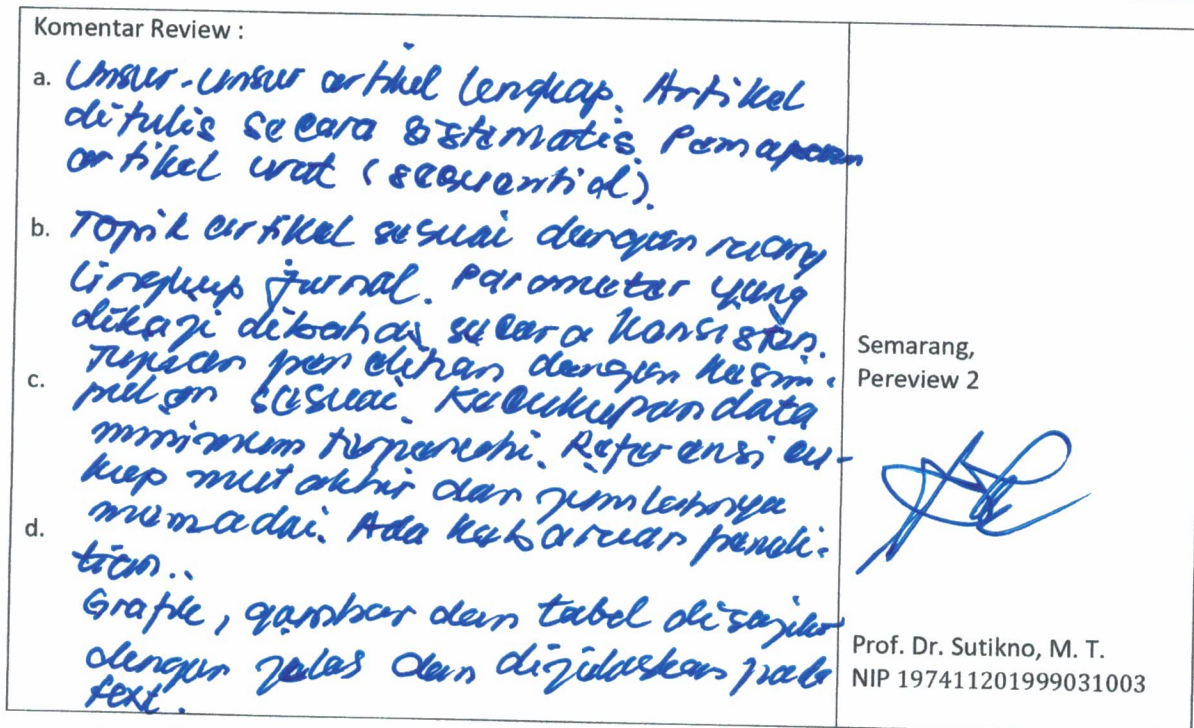 Komentar Review :
a. Unsur-unsur artikel lengkap. Artikel
ditulis secara sistematis. Pemaparan
artikel urut (sequential).
b. Topik artikel sesuai dengan ruang
lingkup jurnal. Parameter yang
dikaji dibahas secara konsisten.
c. Tujuan penelitian dengan kesim-
pulan sesuai. Kecukupan data
minimum terpenuhi. Referensi cu-
kup mutakhir dan jumlahnya
d. memadai. Ada kebaruan peneli-
tian..
Grafik, gambar dan tabel disajikan
dengan jelas dan dijelaskan pada
text.
Semarang,
Pereview 2
Prof. Dr. Sutikno, M. T.
NIP 197411201999031003